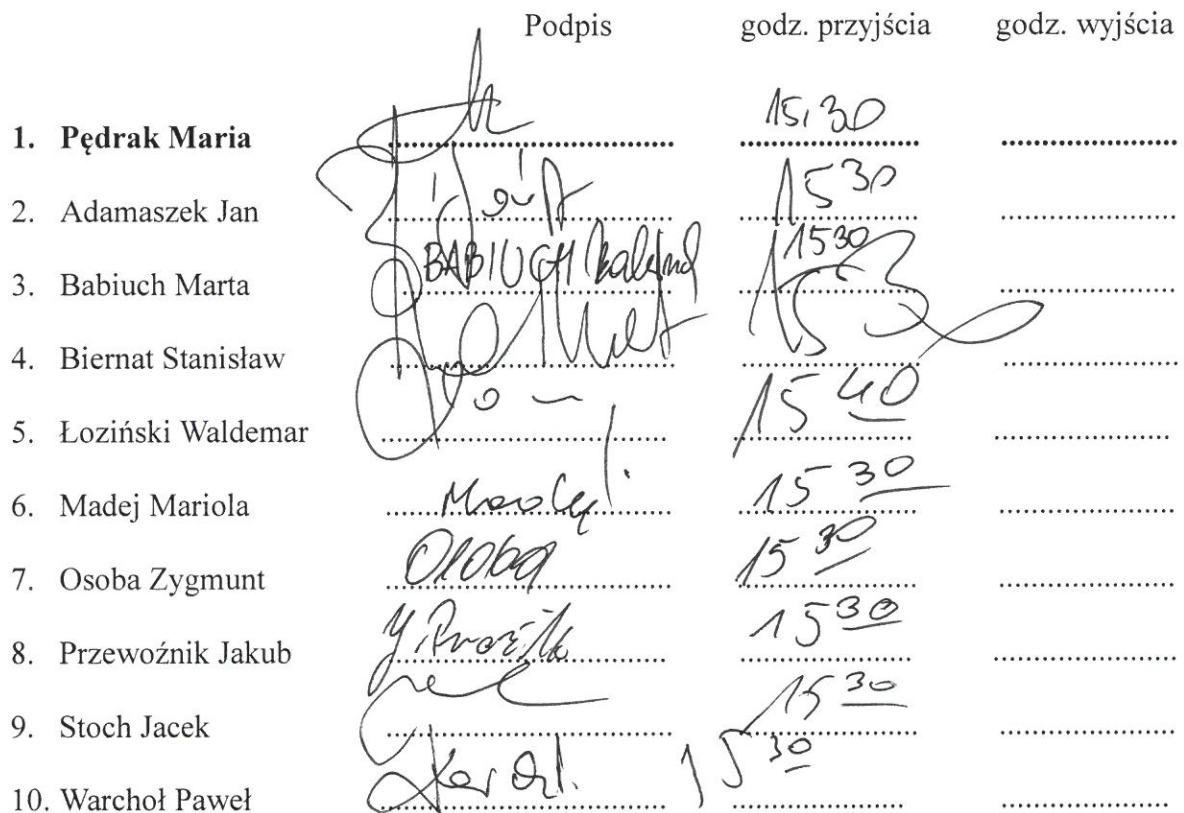 Podpis godz. przyjścia godz. wyjścia
1. Pędrak Maria 15:30
2. Adamaszek Jan 15 30
3. Babiuch Marta BABIUCH 15 30
4. Biernat Stanisław 15 3
5. Łoziński Waldemar 15 40
6. Madej Mariola 15 30
7. Osoba Zygmunt Osoba 15 30
8. Przewoźnik Jakub 15 30
9. Stoch Jacek 15 30
10. Warchoł Paweł 15 30